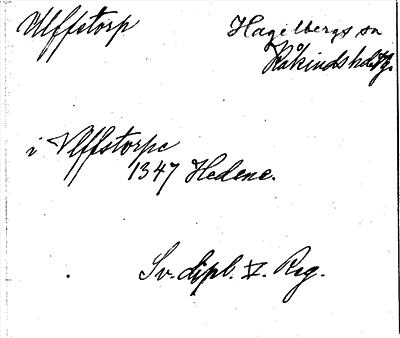 Ulffstorp
Hagelbergs sn
Kåkinds hd. Vg.
i Vlffstorpe
1347 Hedene.
Sv. dipl. V. Reg.